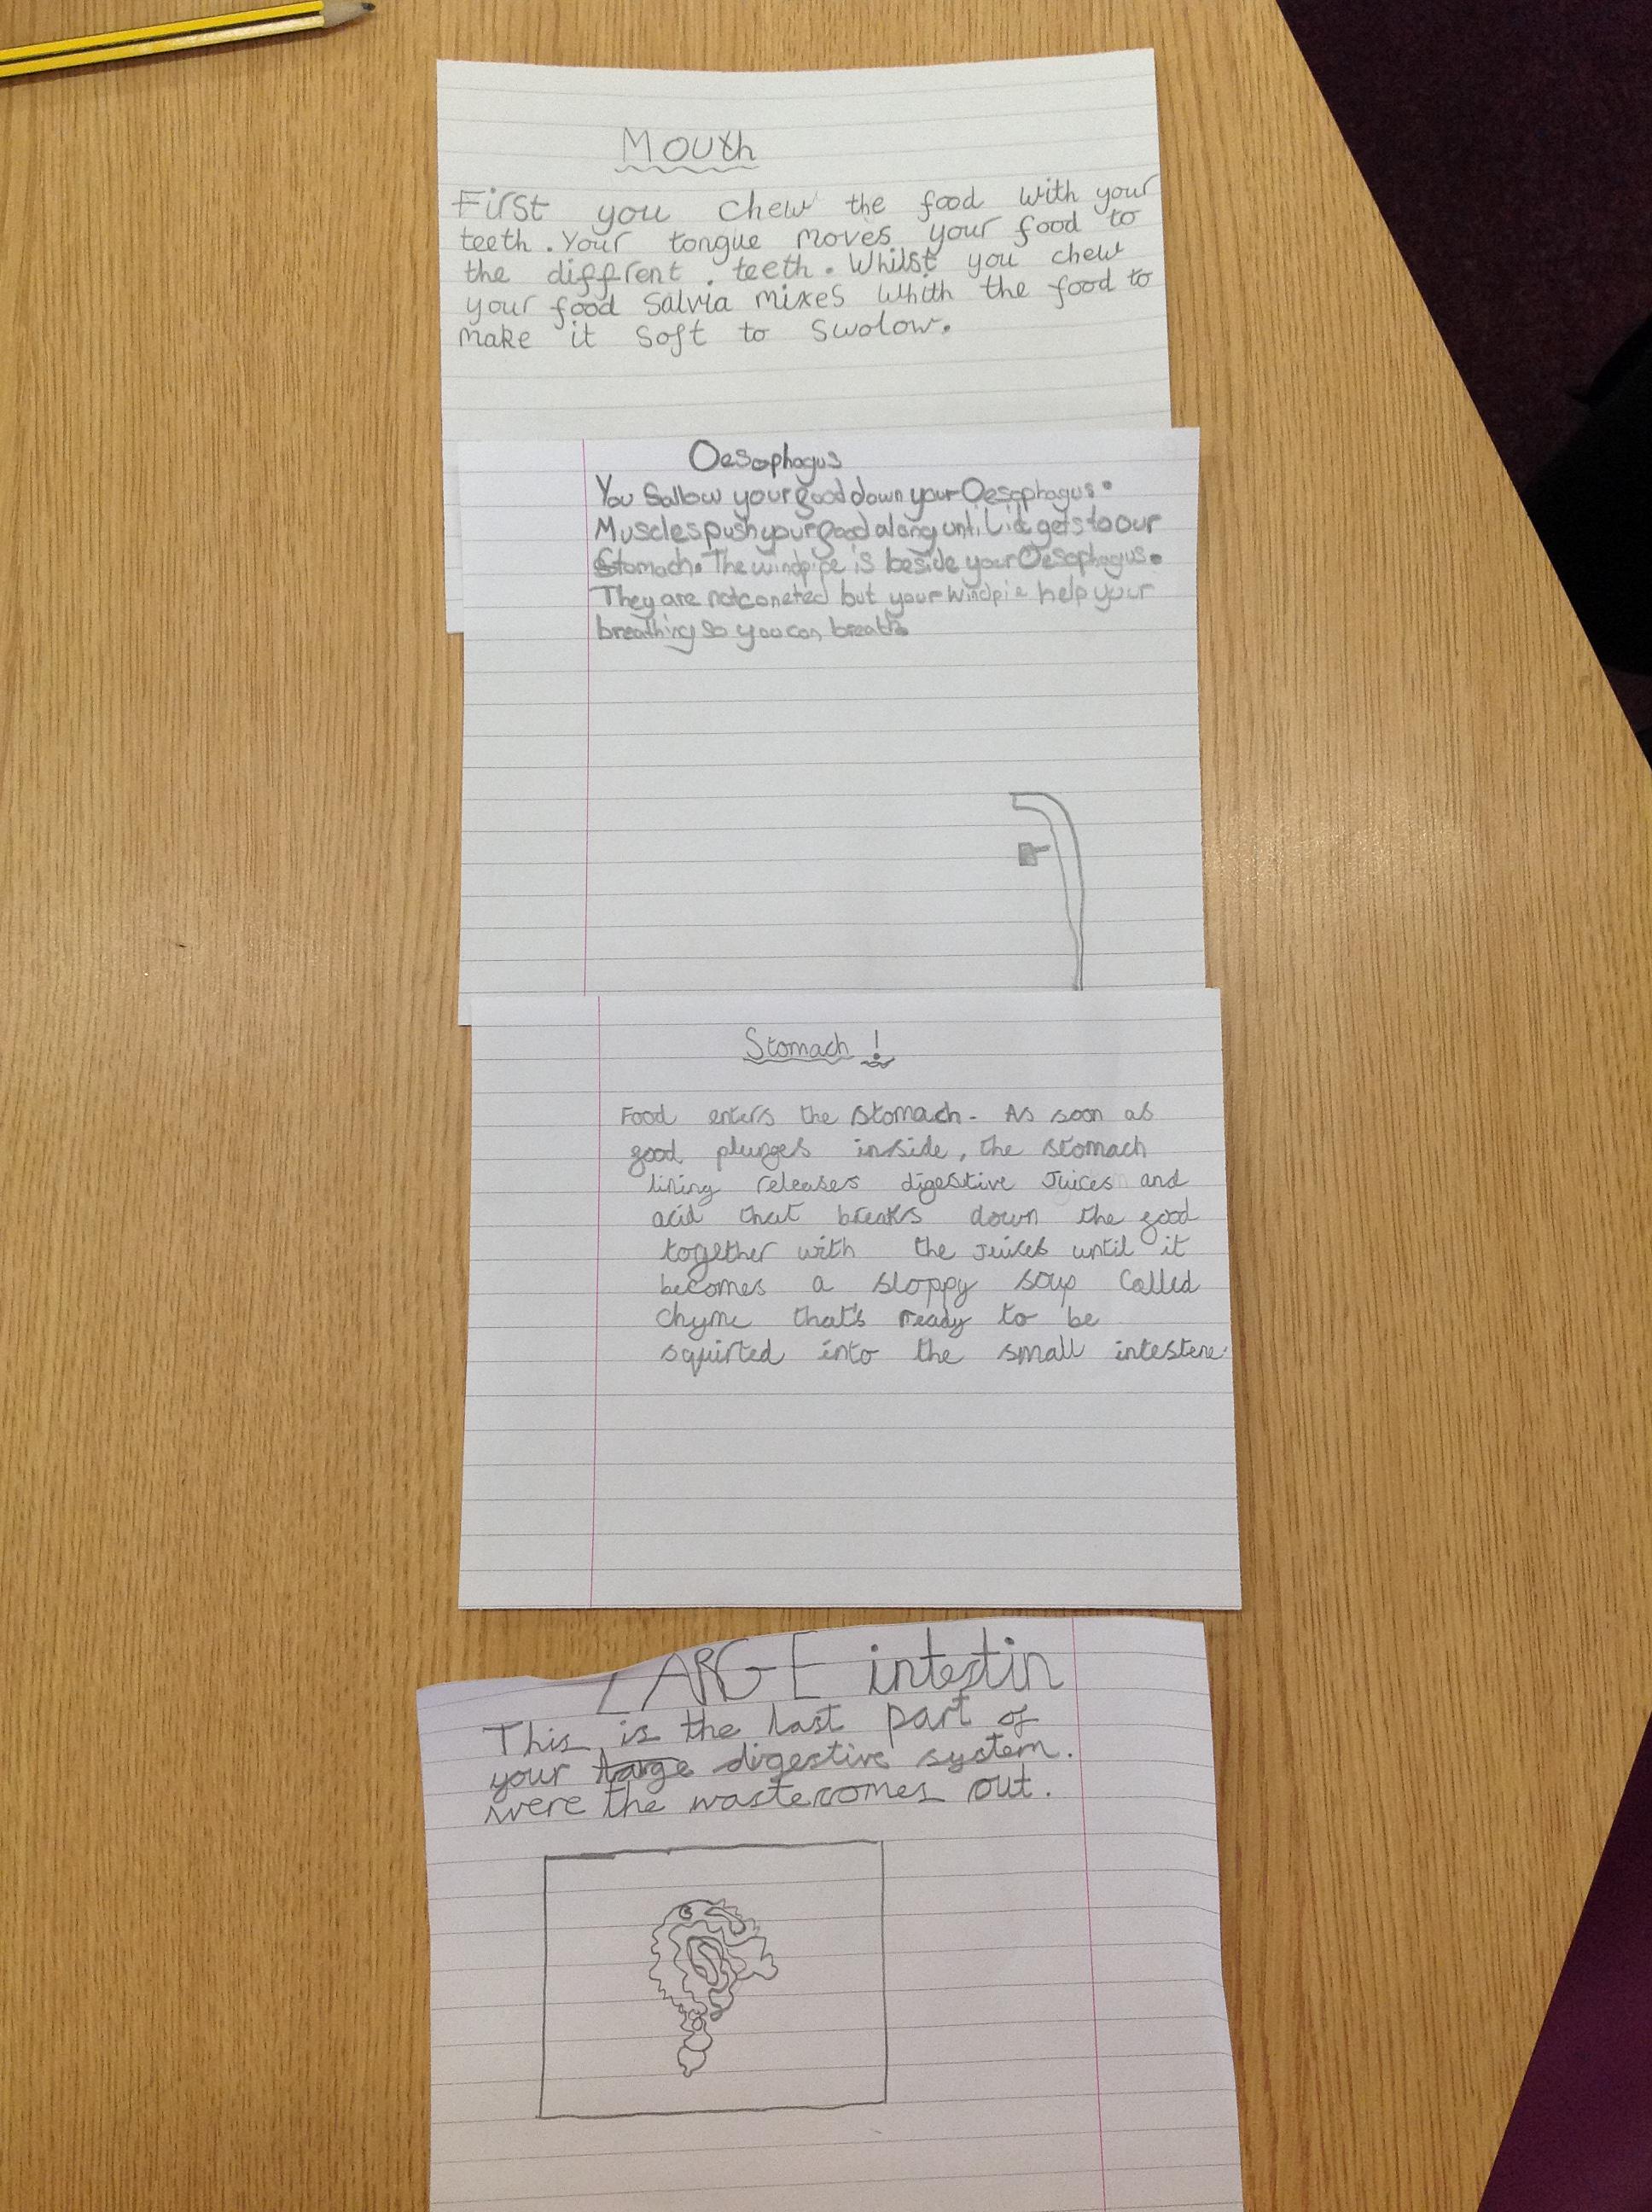 Mouth
First you chew the food with your
teeth. Your tongue moves your food to
the diffrent. teeth. Whilst you chew
your food Salvia mixes whith the food to
make it soft to swolow.
Oesophagus
You Sallow your food down your Oesophagus.
Muscles push your food along until it gets to our
Stomach. The windpipe is beside your Oesophagus.
They are not coneted but your windpie help your
breathing so you can breath.
Stomach!
Food enters the stomach. As soon as
food plunges inside, the stomach
lining releases digestive Juices and
acid that breaks down the food
together with the Juices until it
becomes a sloppy soup Called
Chyme that's ready to be
squirted into the small intestene.
LARGE intestin
This is the last part of
your large digestive system.
were the waste comes out.